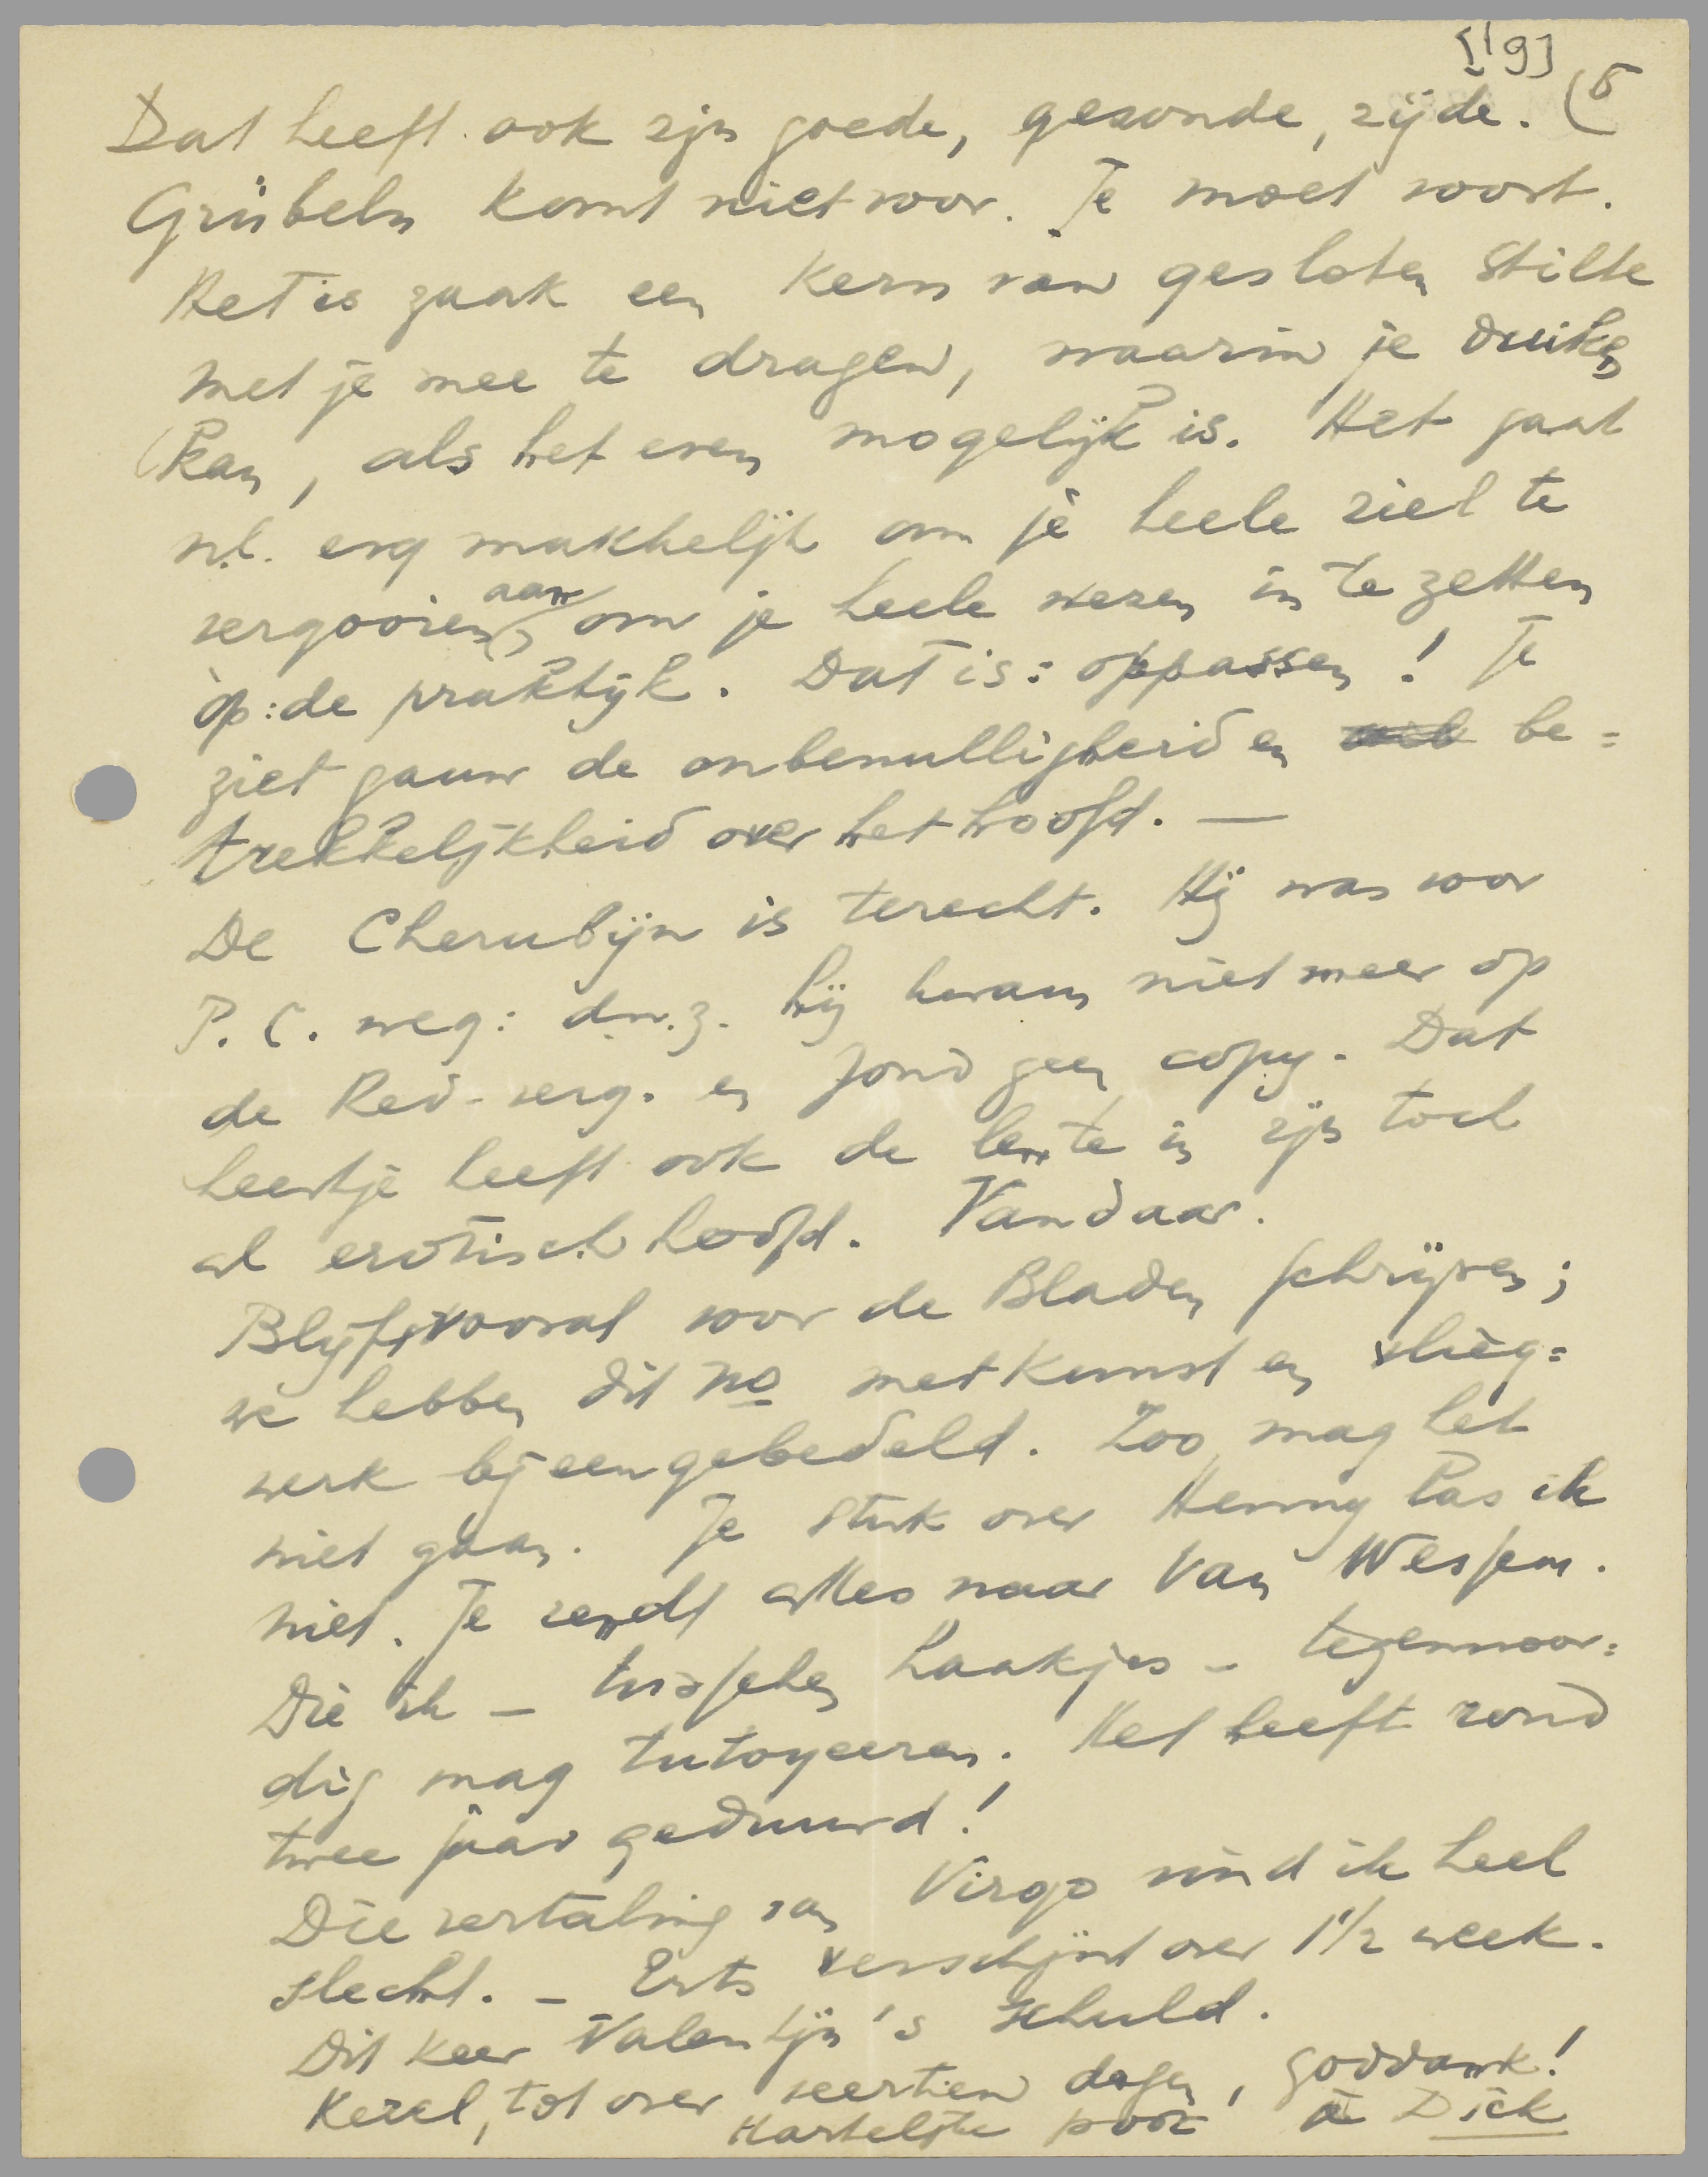 [19]
(5
Dat heeft ook zijn goede, gezonde, zijde.
Grübeln komt niet voor. Je moet voort.
Het is zaak een kern van gesloten stilte
met je mee te dragen, waarin je duiken
kan, als het even mogelijk is. Het gaat
n.l. erg makkelijk om je heele ziel te
vergooien aan, om je heele wezen in te zetten
òp: de praktijk. Dat is: oppassen! Je
ziet gauw de onbenulligheid en be=
trekkelijkheid over het hoofd. —
De Cherubijn is terecht. Hij was voor
P.C. weg: d.w.z. hij kwam niet meer op
de Red-verg. en zond geen copy. Dat
heertje heeft ook de lente in zijn toch
al erotisch hoofd. Vandaar.
Blijf vooral voor de Bladen schrijven;
we hebben dit no met kunst en vlieg=
werk bijeengebedeld. Zoo mag het
niet gaan. Je stuk over Henny las ik
niet. Je zendt alles naar Van Wessem.
Die ik – tusschen haakjes – tegenwoor=
dig mag tutoyeeren. Het heeft rond
twee jaar geduurd!
Die vertaling van Virgo vind ik heel
slecht. – Erts verschijnt over 1 1/2 week.
Dit keer Valentijn's schuld.
Kerel, tot over veertien dagen, goddank!
Hartelijke poot à Dick